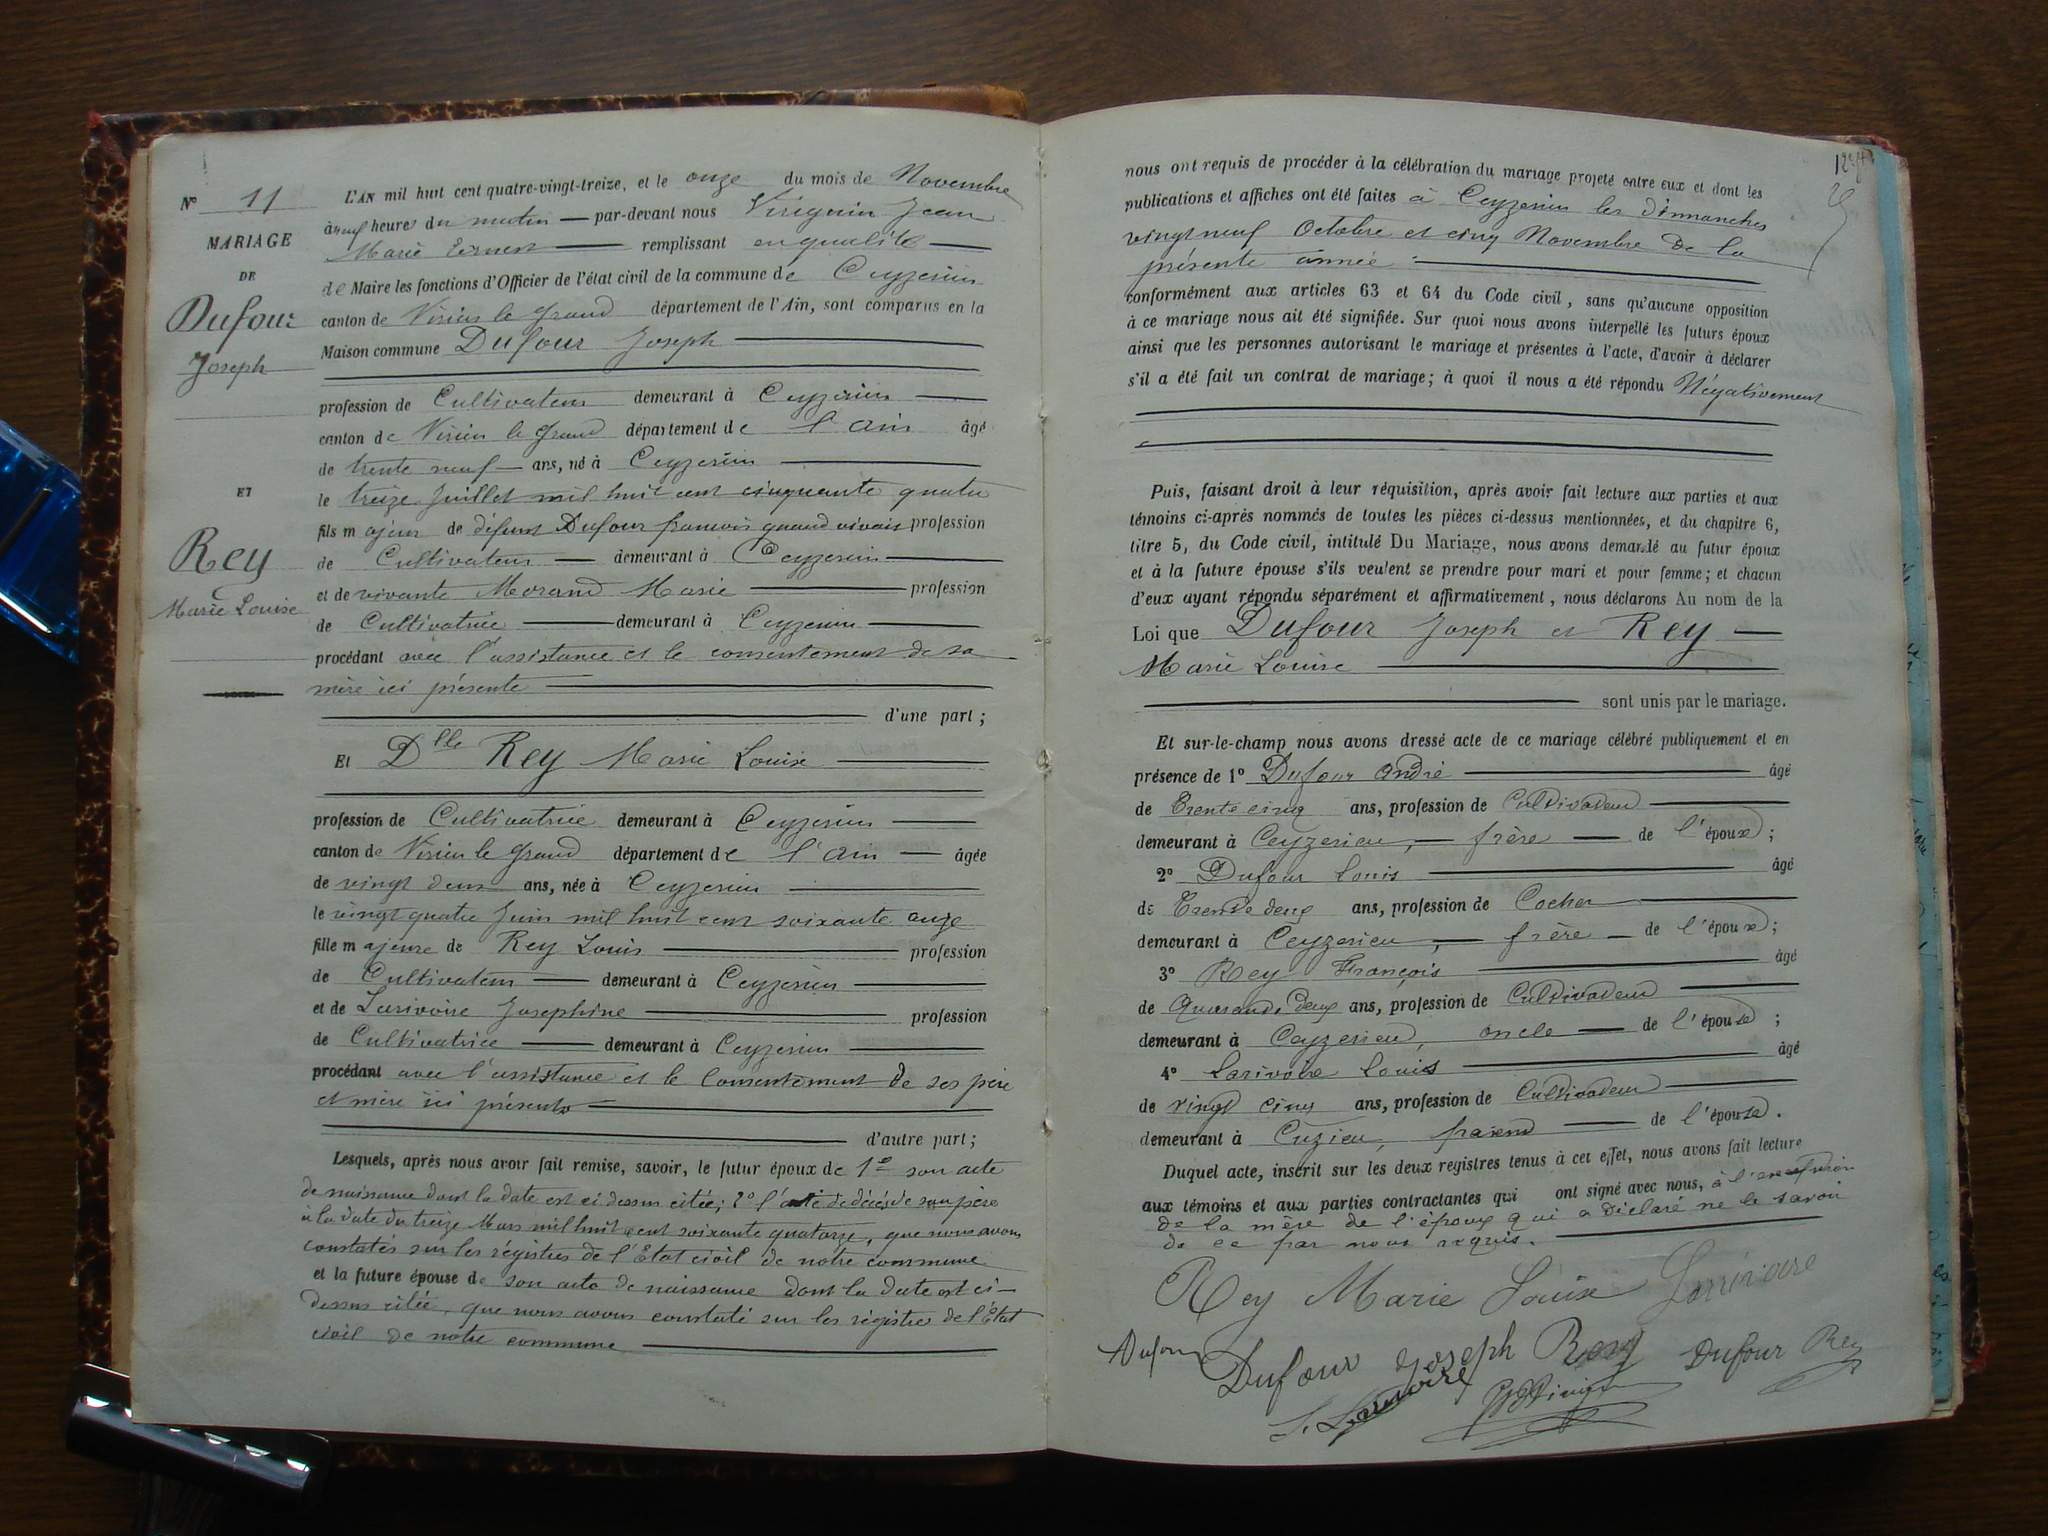 N° 11
MARIAGE
DE
Dufour
Joseph
ET
Rey
Marie Louise
L'AN mil huit cent quatre-vingt-treize, et le onze du mois de Novembre
à neuf heures du matin par-devant nous Jean
Marie Ernest remplissant en qualité
de Maire les fonctions d'Officier de l'état civil de la commune de Ceyzerieu
canton de Virieu le grand département de l'Ain, sont comparus en la
Maison commune Dufour Joseph
profession de Cultivateur demeurant à Ceyzerieu
canton de Virieu le Grand département de l'Ain âgé
de trente neuf ans, né à Ceyzerieu
le treize Juillet mil huit cent cinquante quatre
fils majeur de défunt Dufour francois quand vivait profession
de Cultivateur demeurant à Ceyzerieu
et de vivante Morand Marie profession
de Cultivatrice demeurant à Ceyzerieu
procédant avec l'assistance et le consentement de sa
mère ici présente
d'une part ;
Et Dlle Rey Marie Louise
profession de Cultivatrice demeurant à Ceyzerieu
canton de Virieu le Grand département de l'Ain âgée
de vingt deux ans, née à Ceyzerieu
le vingt quatre Juin mil huit cent soixante onze
fille majeure de Rey Louis profession
de Cultivateur demeurant à Ceyzerieu
et de Larivoire Josephine profession
de Cultivatrice demeurant à Ceyzerieu
procédant avec l'assistance et le consentement de ses père
et mère ici présents
d'autre part ;
Lesquels, après nous avoir fait remise, savoir, le futur époux de 1° son acte
de naissance dont la date est ci dessus citée; 2° l'acte de décès de son père
à la date du treize Mars mil huit cent soixante quatorze, que nous avons
constatés sur les régistres de l'Etat civil de notre commune
et la future épouse de son acte de naissance dont la date est ci-
dessus citée, que nous avons constaté sur les régistres de l'Etat
civil de notre commune
nous ont requis de procéder à la célébration du mariage projeté entre eux et dont les
publications et affiches ont été faites à Ceyzerieu les dimanches
vingt neuf Octobre et cinq Novembre de la
présente année
conformément aux articles 63 et 64 du Code civil, sans qu'aucune opposition
à ce mariage nous ait été signifiée. Sur quoi nous avons interpellé les futurs époux
ainsi que les personnes autorisant le mariage et présentes à l'acte, d'avoir à déclarer
s'il a été fait un contrat de mariage; à quoi il nous a été répondu Négativement
Puis, faisant droit à leur réquisition, après avoir fait lecture aux parties et aux
témoins ci-après nommés de toutes les pièces ci-dessus mentionnées, et du chapitre 6,
titre 5, du Code civil, intitulé Du Mariage, nous avons demandé au futur époux
et à la future épouse s'ils veulent se prendre pour mari et pour femme; et chacun
d'eux ayant répondu séparément et affirmativement, nous déclarons Au nom de la
Loi que Dufour Joseph et Rey
Marie Louise
sont unis par le mariage.
Et sur-le-champ nous avons dressé acte de ce mariage célébré publiquement et en
présence de 1° Dufour André âgé
de Trente cinq ans, profession de Cultivateur
demeurant à Ceyzerieu, frère de l'époux ;
2° Dufour Louis âgé
de Trente deux ans, profession de Cocher
demeurant à Ceyzerieu, frère de l'époux ;
3° Rey François âgé
de Quarante deux ans, profession de Cultivateur
demeurant à Ceyzerieu, oncle de l'épouse ;
4° Larivoire Louis âgé
de vingt cinq ans, profession de Cultivateur
demeurant à Cuzieu, parent de l'épouse.
Duquel acte, inscrit sur les deux registres tenus à cet effet, nous avons fait lecture
aux témoins et aux parties contractantes qui ont signé avec nous, à l'exception
de la mère de l'époux qui a déclaré ne le savoir
de ce par nous requis.
Rey Marie Louise Larrivoire
Dufour Dufour Joseph Rey Dufour Rey
L. Larivoire